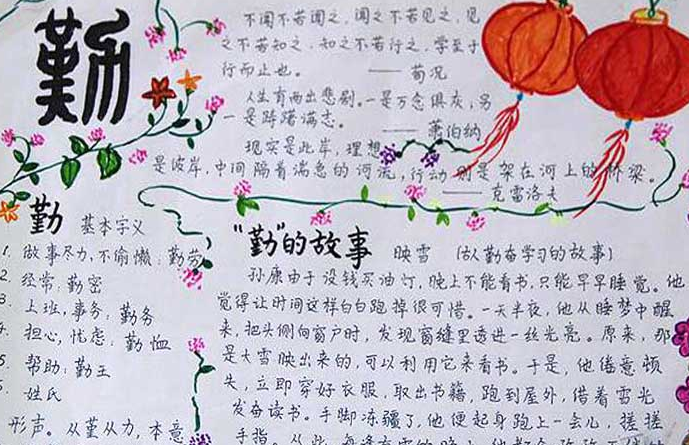 勤
不闻不若闻之,闻之不若见之,见
之不若知之,知之不若行之,学至于
行而止也。
—— 荀况
人生有两出悲剧。一是万念俱灰,另
一是踌躇满志。
—— 萧伯纳
现实是此岸,理想
是彼岸,中间隔着湍急的河流,行动则是架在河上的桥梁。
—— 克雷洛夫
勤 基本字义
1. 做事尽力,不偷懒:勤劳
2. 经常,勤密
3. 上班,事务:勤务
4. 担心,忧虑:勤恤
5. 帮助:勤王
6. 姓氏
形声。从堇从力,本意
“勤”的故事 映雪 (以勤奋学习的故事)
孙康由于没钱买油灯,晚上不能看书,只能早早睡觉。他
觉得让时间这样白白跑掉很可惜。一天半夜,他从睡梦中醒
来,把头侧向窗户时,发现窗缝里透进一丝光亮。原来,那
是大雪映出来的,可以利用它来看书。于是,他倦意顿
失,立即穿好衣服,取出书籍,跑到屋外,借着雪光
发奋读书。手脚冻疆了,他便起身跑上一会儿,搓搓
手指。从此,每逢有雪的晚上,他